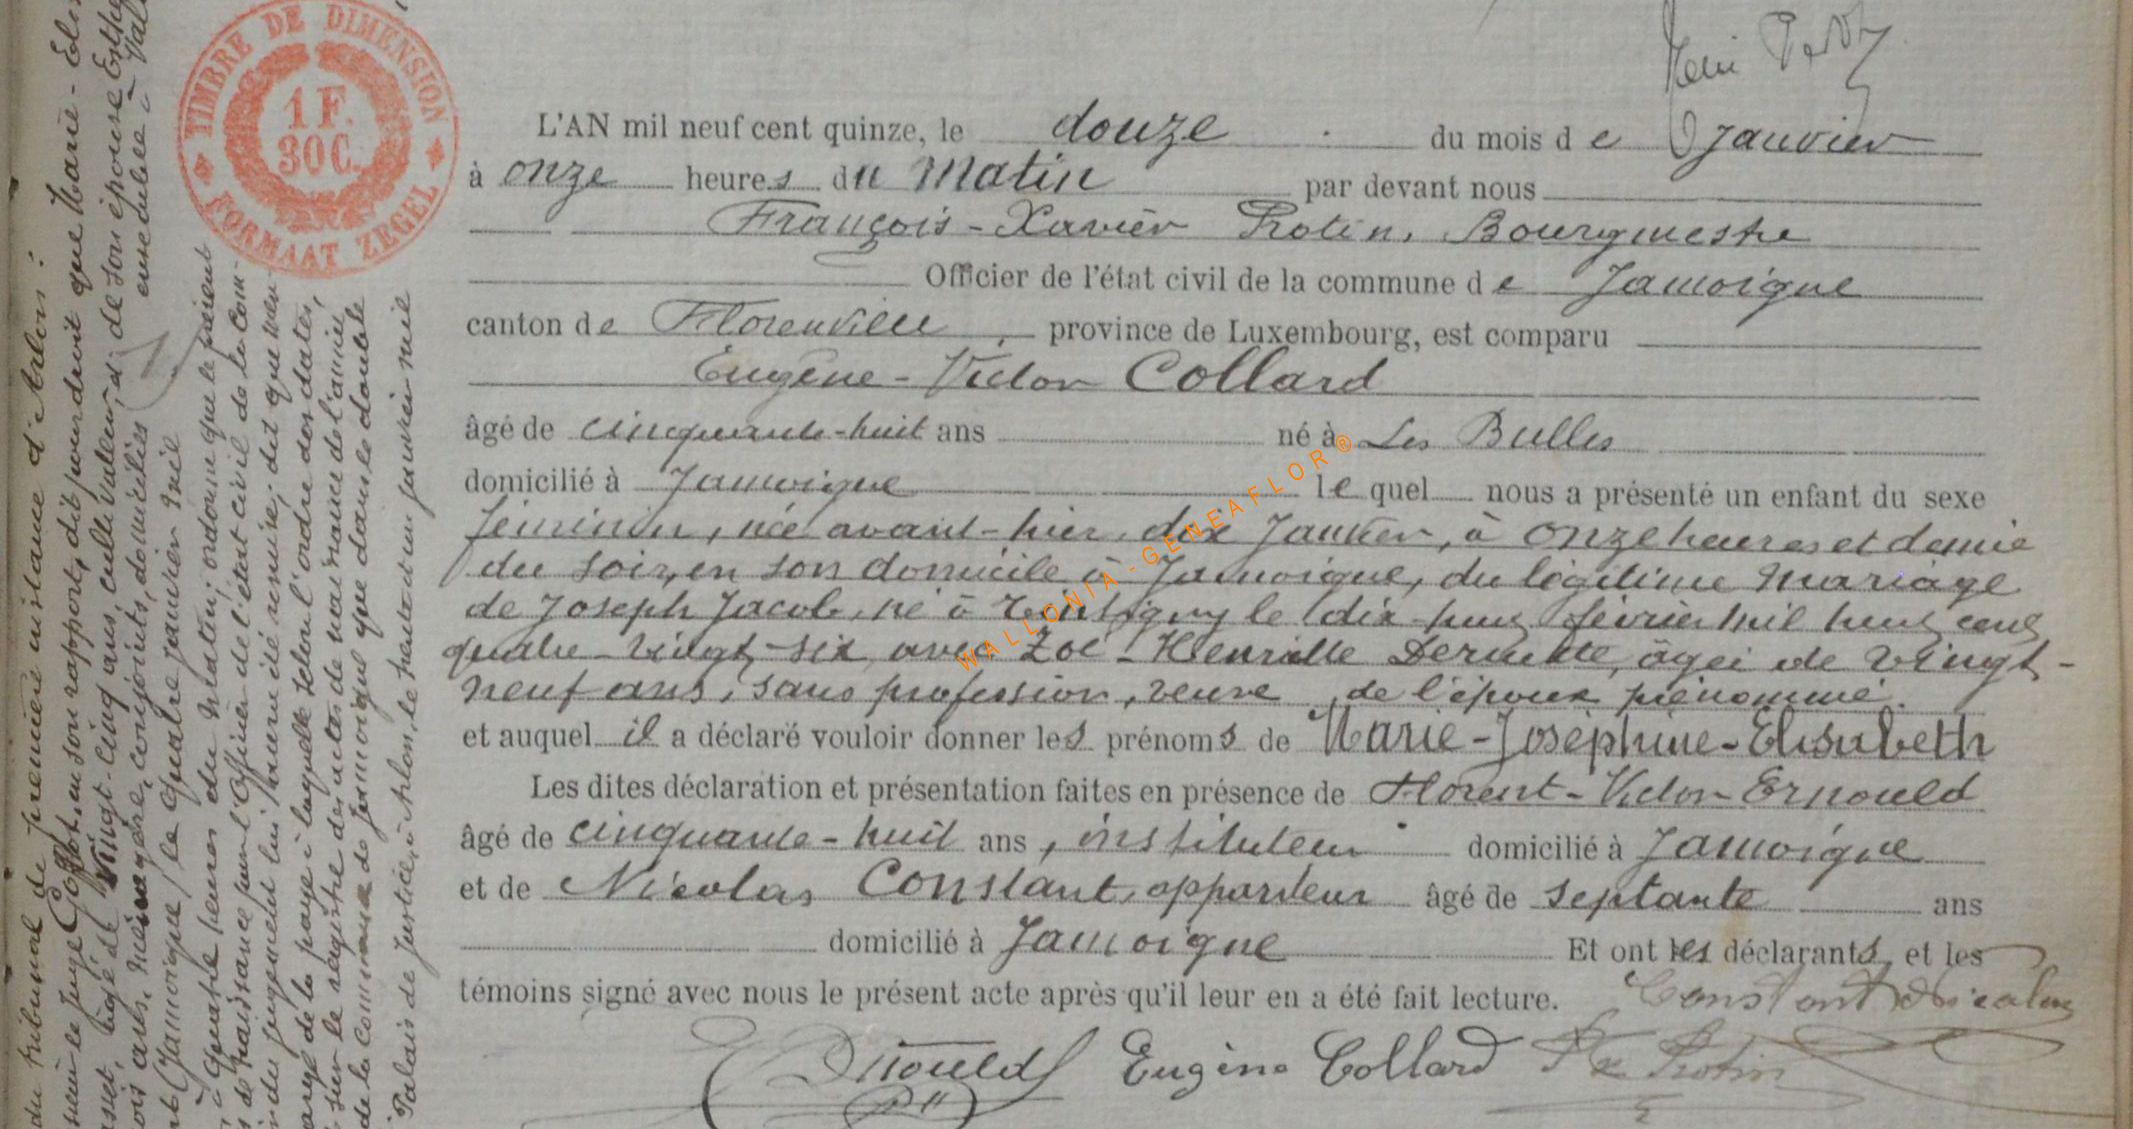 TIMBRE DE DIMENSION
1 F.
30 C.
FORMAAT ZEGEL
L'AN mil neuf cent quinze, le douze du mois de Janvier
à onze heures du Matin par devant nous
François-Xavier Protin, Bourgmestre
Officier de l'état civil de la commune de Jamoigne
canton de Florenville, province de Luxembourg, est comparu
Eugène-Victor Collard
âgé de cinquante-huit ans né à Les Bulles
domicilié à Jamoigne lequel nous a présenté un enfant du sexe
féminin, née avant-hier, dix Janvier, à onze heures et demie
du soir, en son domicile à Jamoigne, du légitime mariage
de Joseph Jacob, né à Tintigny le dix-huit février mil huit cent
quatre-vingt-six avec Zoé-Henriette, âgée de vingt-
neuf ans, sans profession, veuve de l'époux prénommé.
et auquel il a déclaré vouloir donner les prénoms de Marie-Joséphine-Elisabeth
Les dites déclaration et présentation faites en présence de Florent-Victor Ernould
âgé de cinquante-huit ans, instituteur domicilié à Jamoigne
et de Nicolas Constant, appariteur âgé de septante ans
domicilié à Jamoigne Et ont les déclarants et les
témoins signé avec nous le présent acte après qu'il leur en a été fait lecture. Constant Nicolas
Ernould Eugène Collard Fx Protin
WALLONIA-GENEAFLOR®
du tribunal de première instance d'Arlon :
en son rapport, dit pour droit que Marie-
vingt-cinq ans, cultivateur, et de son épouse
ans, ménagère, conjoints, domiciliés ensemble à
Jamoigne le quatre janvier mil
à quatre heures du matin; ordonne que le présent
de naissance par l'Officier de l'état civil de la Com-
du jugement lui sera été remise; dit que men-
marge de la page à laquelle selon l'ordre des dates,
sur le registre des actes de naissance de l'année
de la Commune de Jamoigne que dans le double
Palais de Justice, à Arlon, le trente et un janvier mil